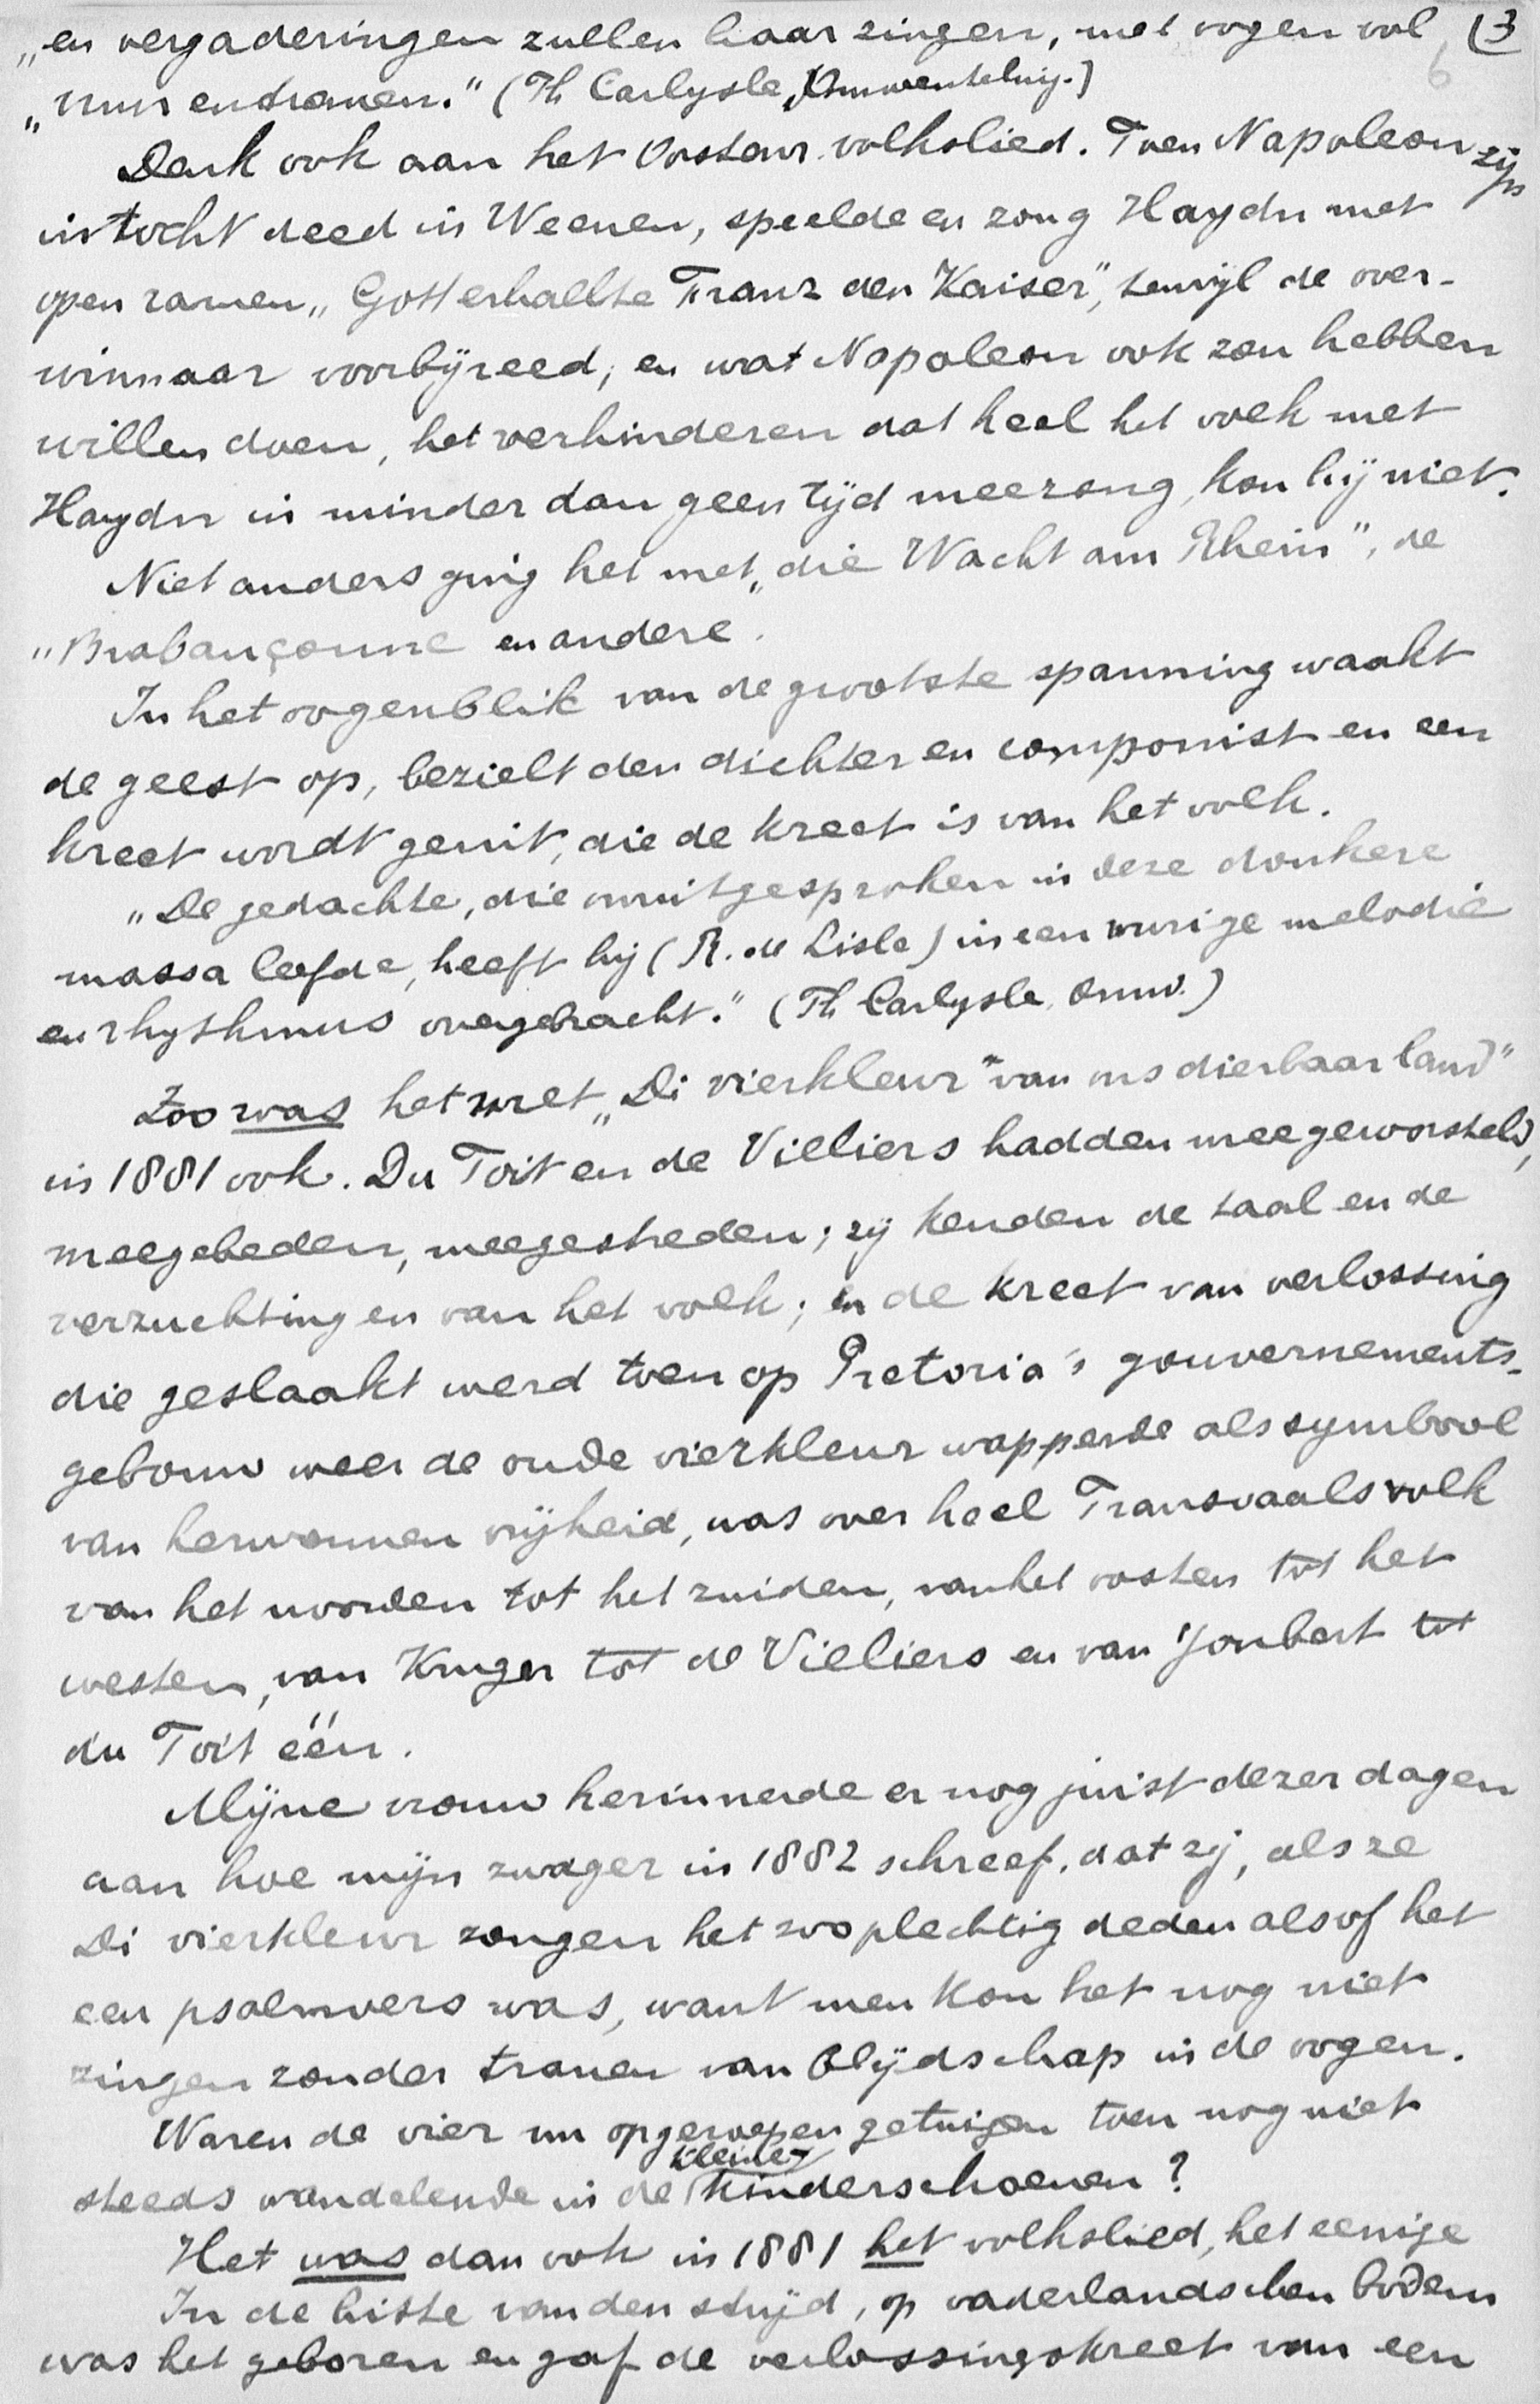 „en vergaderingen zullen haar zingen, met oogen vol (3
6
„vuur en tranen.“ (Th Carlysle, Omwenteling.)
Denk ook aan het Oostenr. volkslied. Toen Napoleon zijn
intocht deed in Weenen, speelde en zong Haydn met
open ramen „Gott erhallte Franz den Kaiser“, terwijl de over-
winnaar voorbijreed; en wat Napoleon ook zou hebben
willen doen, het verhinderen dat heel het volk met
Haydn in minder dan geen tijd meezong, kon hij niet.
Niet anders ging het met „die Wacht am Rhein“, de
„Brabançonne en andere“.
In het oogenblik van de grootste spanning waakt
de geest op, bezielt den dichter en componist en een
kreet wordt geuit, die de kreet is van het volk.
„De gedachte, die onuitgesproken in deze donkere
massa leefde, heeft hij (R. de Lisle) in een vurige melodie
en rhythmus overgebracht.“ (Th Carlysle, Omw.)
Zoo was het met „Di vierkleur“ van ons dierbaar land“
in 1881 ook. Du Toit en de Villiers hadden meegeworsteld,
meegebeden, meegestreden; zij kenden de taal en de
verzuchtingen van het volk; en de kreet van verlossing
die geslaakt werd toen op Pretoria's gouvernements-
gebouw weer de oude vierkleur wapperde als symbool
van herwonnen vrijheid, was over heel Transvaals volk
van het noorden tot het zuiden, van het oosten tot het
westen, van Kruger tot de Villiers en van Joubert tot
du Toit één.
Mijne vrouw herinnerde er nog juist dezer dagen
aan hoe mijn zwager in 1882 schreef, dat zij, als ze
Di vierkleur zongen het zoo plechtig deden alsof het
een psalmvers was, want men kon het nog niet
zingen zonder tranen van blijdschap in de oogen.
Waren de vier nu opgeroepen getuigen toen nog niet
steeds wandelende in de kleine kinderschoenen?
Het was dan ook in 1881 het volkslied, het eenige
In de hitte van den strijd, op vaderlandschen bodem
was het geboren en gaf de verlossingskreet van een